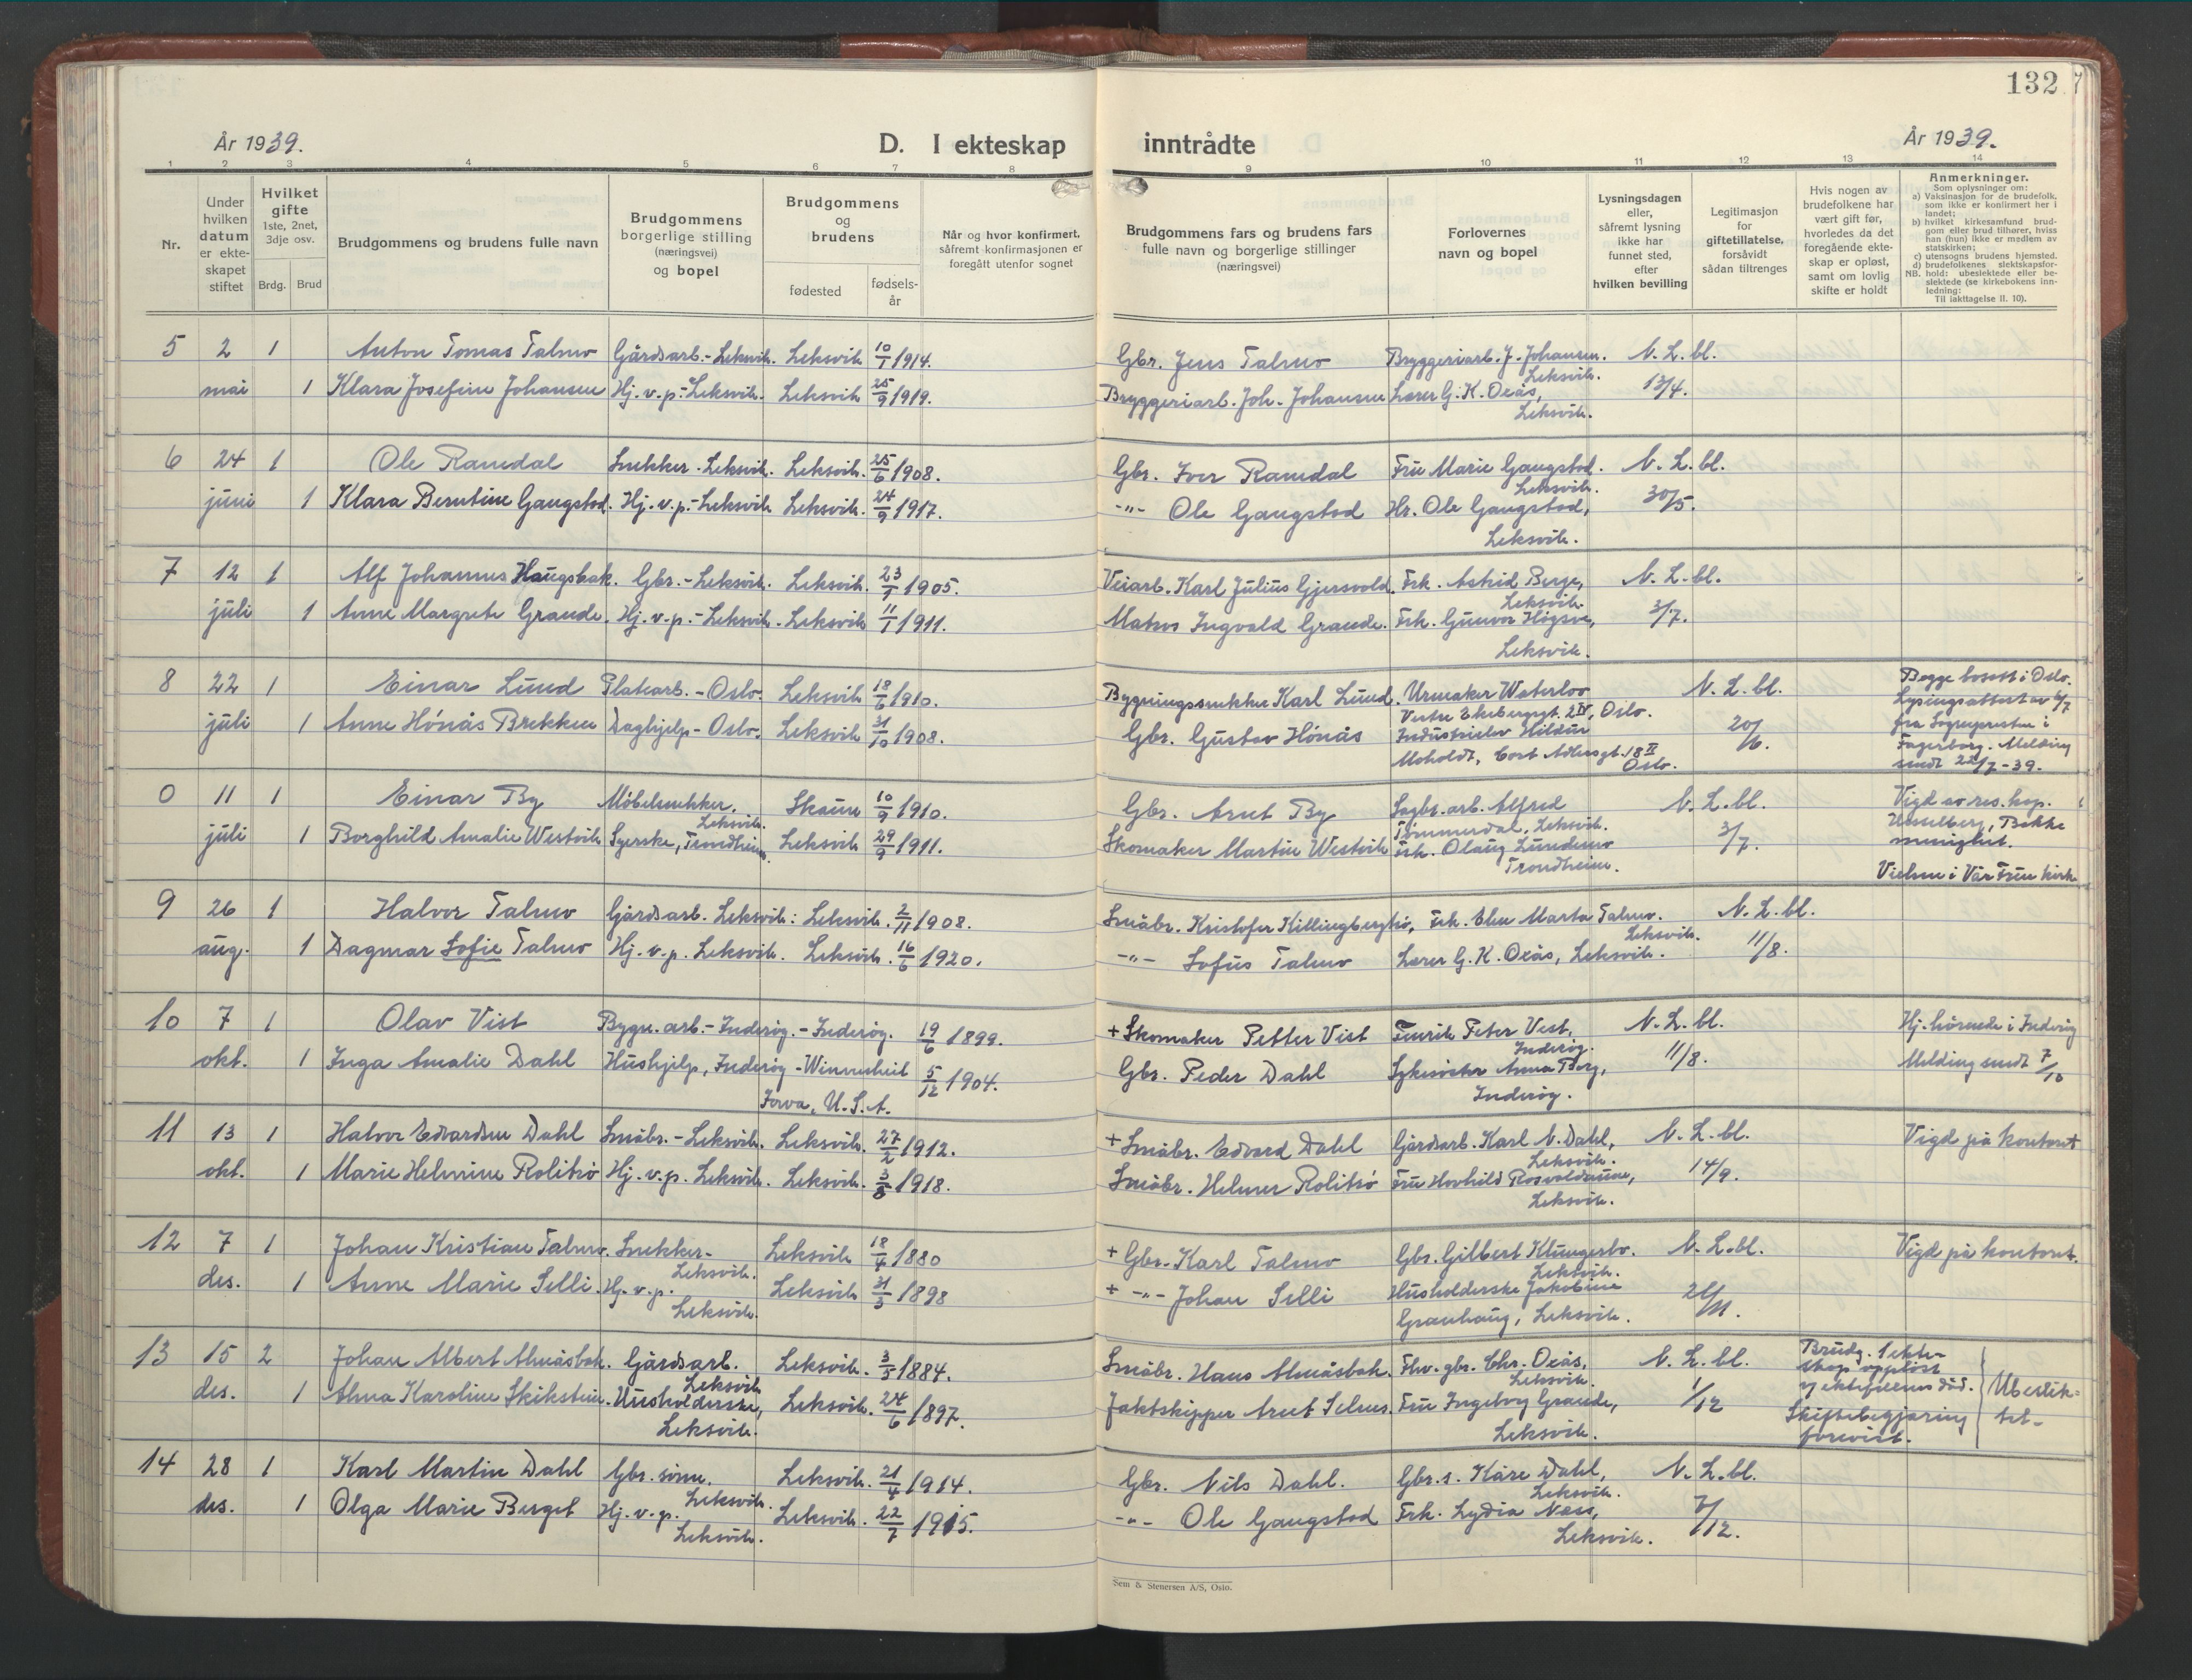 132
År 1939.
D. I ekteskap inntrådte
År 1939.
1 2 3 4 5 6 7 8 9 10 11 12 13 14
Nr.
Under hvilken datum er ekteskapet stiftet
Hvilket gifte 1ste, 2net, 3dje osv.
Brdg. Brud
Brudgommens og brudens fulle navn
Brudgommens borgerlige stilling (næringsvei) og bopel
Brudgommens og brudens
fødested
fødselsår
Når og hvor konfirmert, såfremt konfirmasjonen er foregått utenfor sognet
Brudgommens fars og brudens fars fulle navn og borgerlige stillinger (næringsvei)
Forlovernes navn og bopel
Lysningsdagen eller, såfremt lysning ikke har funnet sted, efter hvilken bevilling
Legitimasjon for giftetillatelse, forsåvidt sådan tiltrenges
Hvis nogen av brudefolkene har vært gift før, hvorledes da det foregående ekteskap er opløst, samt om lovlig skifte er holdt
Anmerkninger.
Som oplysninger om:
a) Vaksinasjon for de brudefolk, som ikke er konfirmert her i landet;
b) hvilket kirkesamfund brudgom eller brud tilhører, hviss han (hun) ikke er medlem av statskirken;
c) utensogns brudens hjemsted.
d) brudefolkenes slektskapsforhold: ubeslektede eller beslektede (se kirkebokens innledning:
NB. Til iakttagelse II. 10).
5 2 1 Anton Tomas Talmo Gårdsarb.-Leksvik. Leksvik 10/1 1914. Gbr. Jens Talmo Bryggeriarb. J. Johansen. Leksvik. N. L. bl.
mai 1 Klara Josefine Johansen Hj. v. p.-Leksvik. Leksvik 25/9 1919. Bryggeriarb. Joh. Johansen Lærer G. K. Oxås, Leksvik. 13/4.
6 24 1 Ole Ramdal Snekker-Leksvik. Leksvik. 25/6 1908. Gbr. Iver Ramdal Fru Marie Gangstad. Leksvik. N. L. bl.
juni 1 Klara Berntine Gangstad. Hj. v. p.-Leksvik Leksvik. 24/9 1917. -"- Ole Gangstad Hr. Ole Gangstad, Leksvik. 30/5.
7 12 1 Alf Johannes Haugsbak. Gbr.-Leksvik. Leksvik. 23/1 1905. Veiarb. Karl Julius Gjersvold. Frk. Astrid Berge, Leksvik. N. L. bl.
juli 1 Anne Margrete Grande. Hj. v. p.-Leksvik. Leksvik 11/1 1911. Matros Ingvald Grande. Frk. Gunvor Högsve, Leksvik. 3/7.
8 22 1 Einar Lund Platearb.-Oslo. Leksvik 18/6 1910. Bygningssnekker Karl Lund. Urmaker Waterloo Vestre Ekebergsgt. 2 IV, Oslo. N. L. bl. Begge bosatt i Oslo. Lysingsattest av 6/7
juli 1 Anne Hönås Brekken Daghjelp-Oslo. Leksvik 31/10 1908. Gbr. Gustav Hönås Industrielev Hildur Moholdt, Cort Adlersgt. 18 II Oslo. 20/6. fra Sognepresten i Fagerborg. Melding sendt 22/7-39.
0 11 1 Einar By Møbelsnekker. Leksvik. Skaun 10/9 1910. Gbr. Arnt By Sagbr. arb. Alfred Tømmerdal, Leksvik. N. L. bl. Vigd av res. kap. Hasselberg, Bakke
juli 1 Borghild Amalie Westvik Syerske, Trondheim. Leksvik 29/9 1911. Skomaker Martin Westvik Frk. Olaug Lundemo Trondheim. 3/7. menighet. Vielsen i Vår Frue kirke
9 26 1 Halvor Talmo Gårdsarb. Leksvik. Leksvik. 2/11 1908. Småbr. Kristofer Killingbergtrø, Frk. Elen Marta Talmo. Leksvik. N. L. bl.
aug. 1 Dagmar Sofie Talmo Hj. v. p. Leksvik. Leksvik. 16/6 1920. -"- Sofus Talmo Lærer G. K. Oxås, Leksvik. 11/8.
10 7 1 Olav Vist Bygn. arb.-Inderøy.-Inderøy. 19/6 1899. + Skomaker Petter Vist Fenrik Peter Vest, Inderøy. N. L. bl. Hj. hörende i Inderøy
okt. 1 Inga Amalie Dahl Hushjelp, Inderøy-Winnesheik Iowa, U.S.A. 5/12 1904. Gbr. Peder Dahl Sykesöster Anna Borg, Inderøy. 11/8. Melding sendt 7/10
11 13 1 Halvor Edvardsen Dahl Småbr.-Leksvik. Leksvik. 27/2 1912. + Småbr. Edvard Dahl Gårdsarb. Karl N. Dahl, Leksvik. N. L. bl. Vigd på kontoret
okt. 1 Marie Helmine Rolitrö Hj. v. p. Leksvik. Leksvik. 3/8 1918. Småbr. Helmer Rolitrö Fru Hovhild Rosvoldaune, Leksvik. 14/9.
12 7 1 Johan Kristian Talmo. Snekker-Leksvik. Leksvik 18/4 1880 + Gbr. Karl Talmo Gbr. Gilbert Klungerbo. Leksvik. N. L. bl. Vigd på kontoret.
des. 1 Anne Marie Selli. Hj. v. p. Leksvik. Leksvik 31/3 1898 + -"- Johan Selli Husholderske Jakobine Granhaug, Leksvik. 21/11.
13 15 2 Johan Albert Almåsbak. Gårdsarb. Leksvik Leksvik. 3/5 1884. Småbr. Hans Almåsbak. Fhv. gbr. Chr. Oxås, Leksvik. N. L. bl. Brudg. 1 ekteskap opplöst v/ ektefellens död. Ubeslik=
des. 1 Alma Karoline Skikstein. Husholderske, Leksvik. Leksvik. 24/6 1897. Jaktskipper Arnt Selnes. Fru Ingeborg Grande, Leksvik. 1/12 Skiftebegjæring forevist. tet-
14 28 1 Karl Martin Dahl Gbr. sönn. Leksvik. Leksvik. 21/4 1914. Gbr. Nils Dahl. Gbr. s. Kåre Dahl, Leksvik. N. L. bl.
des. 1 Olga Marie Berget Hj. v. p. Leksvik. Leksvik. 22/7 1915. -"- Ole Gangstad Frk. Lydia Næss, Leksvik. 7/12.
Sem & Stenersen A/S, Oslo.